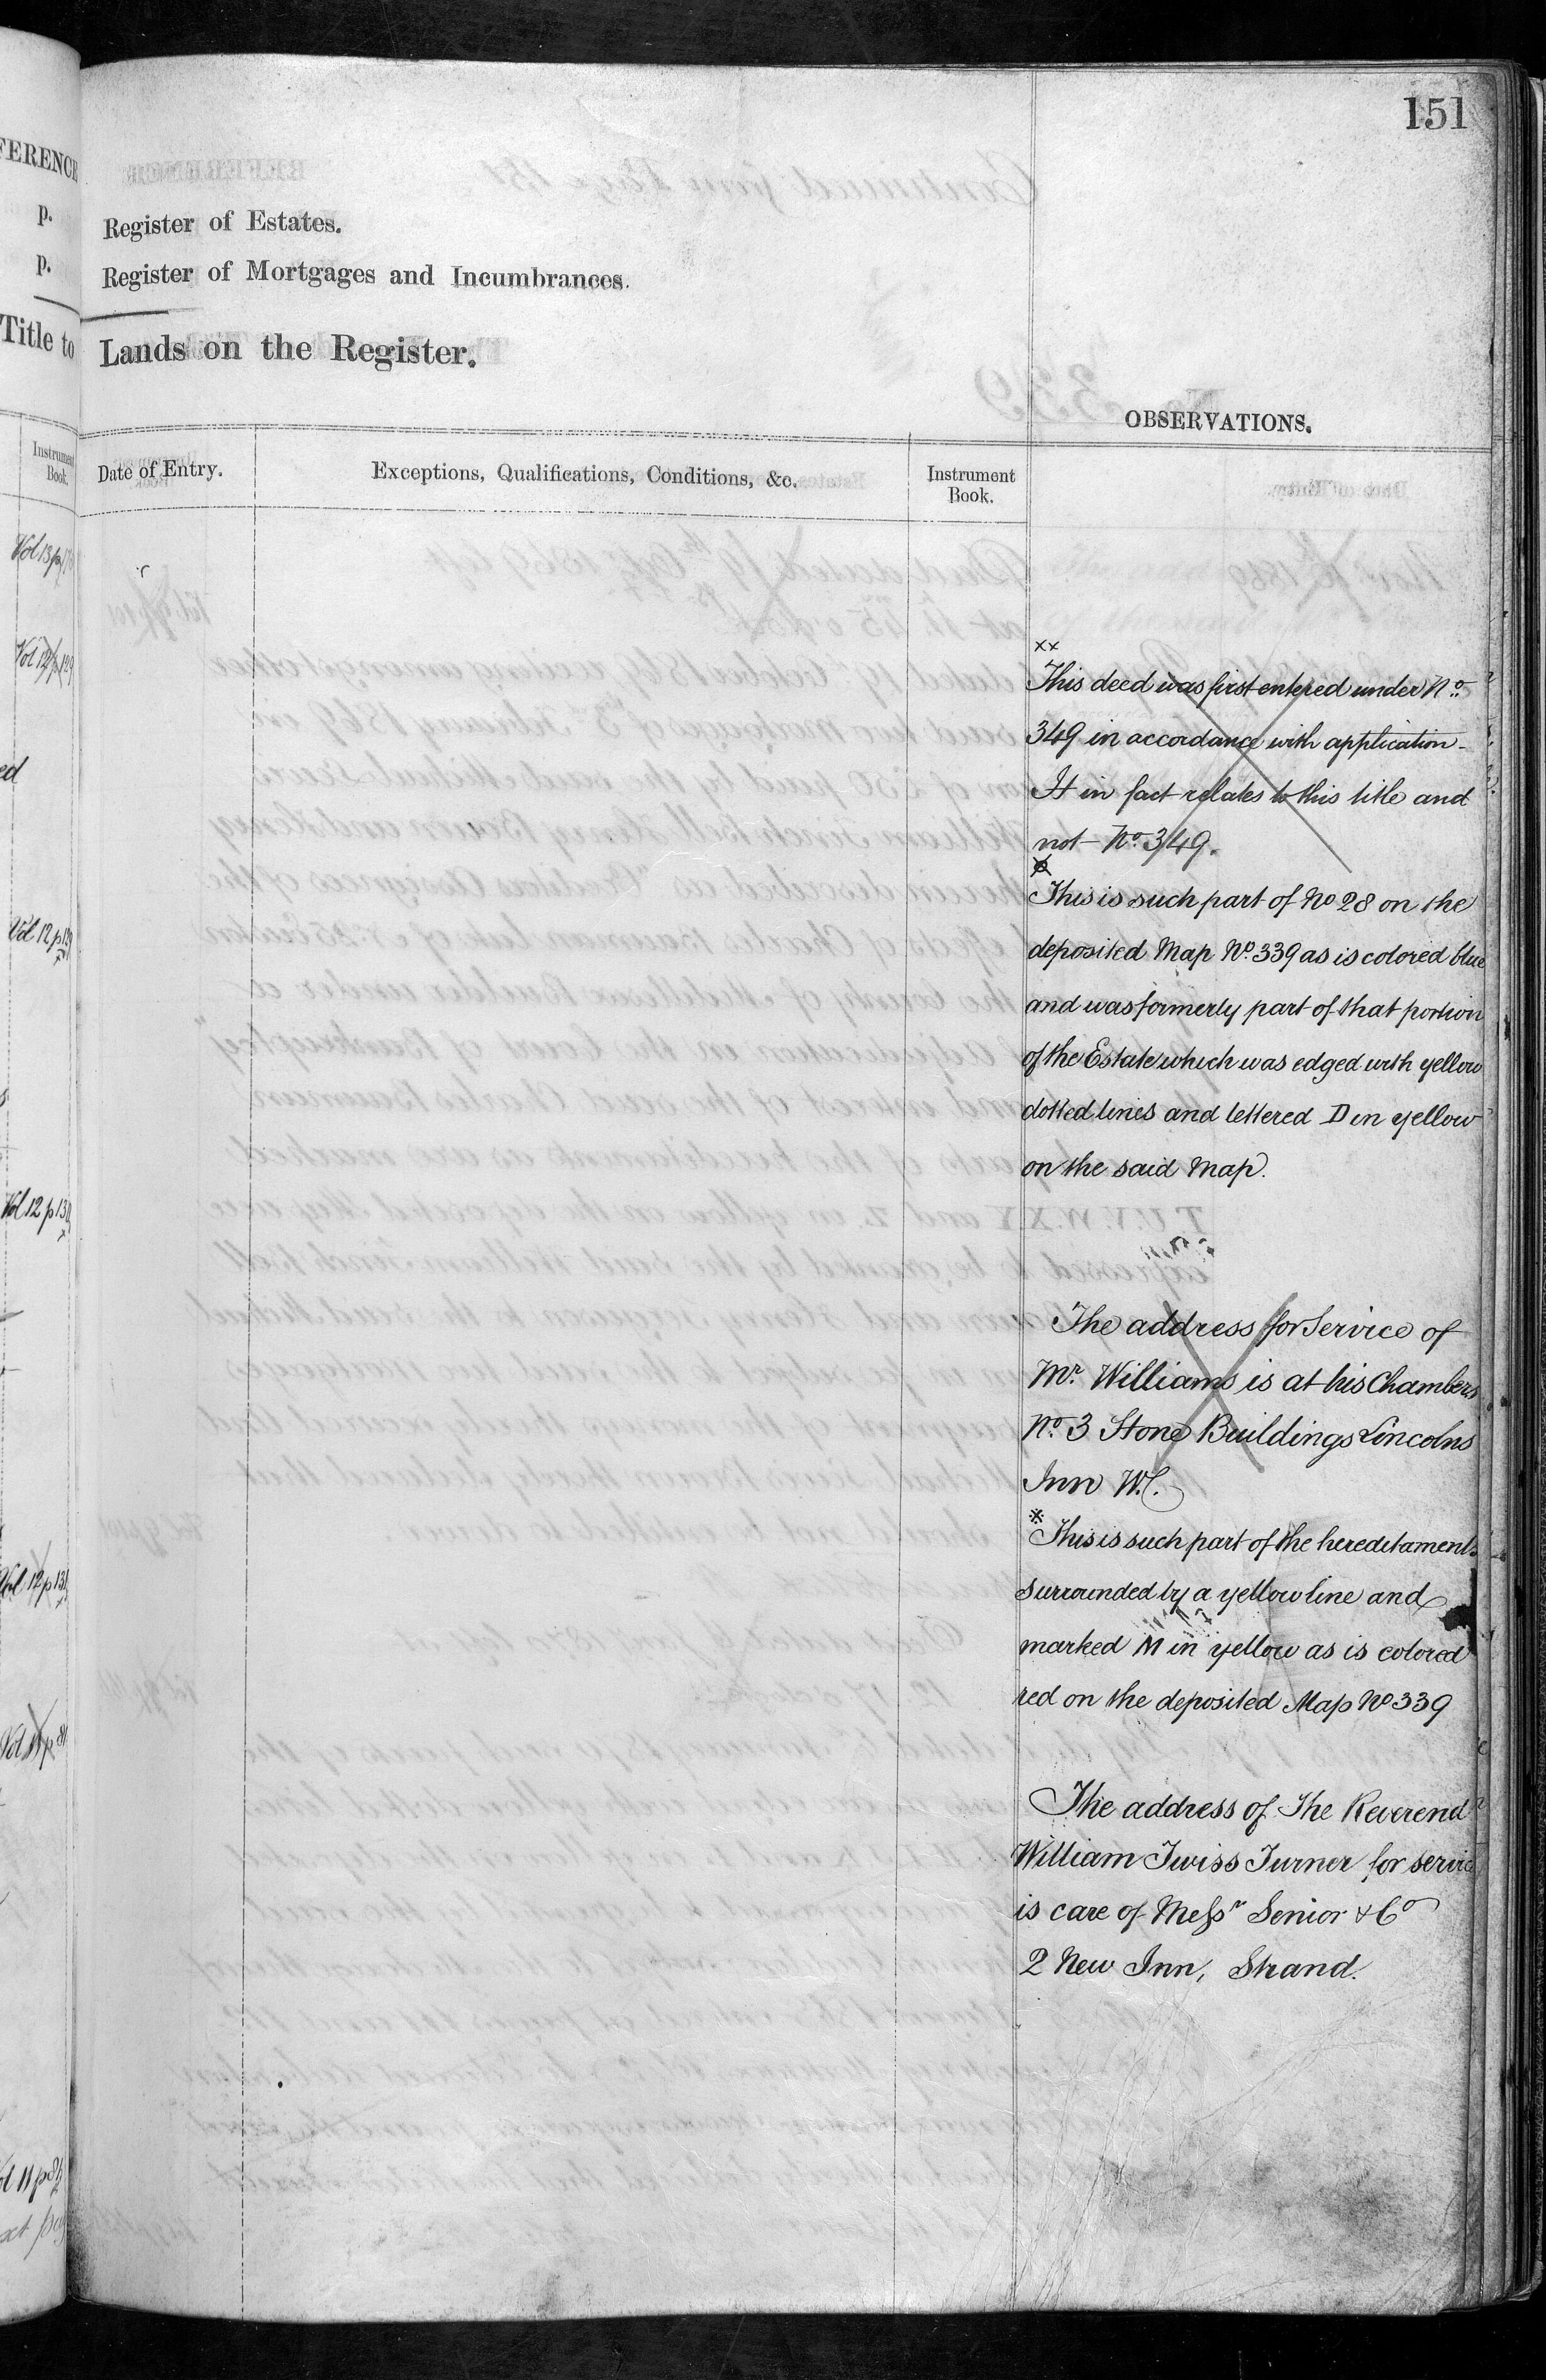 151
FERENCE
p.
p.
Title to
Instrument
Book.
Vol 12 p 129
ed
Vol 12 p 129
Vol 12 p 131
Vol 12 p 131
Vol 11 p 81
Register of Estates.
Register of Mortgages and Incumbrances.
Lands on the Register.
OBSERVATIONS.
Date of Entry.
Exceptions, Qualifications, Conditions, &c.
Instrument
Book.
xx
This deed was first entered under No.
349 in accordance with application -
It in fact relates to this title and
not No. 349.
This is such part of No 28 on the
deposited Map No. 339 as is colored blue
and was formerly part of that portion
of the Estate which was edged with yellow
dotted lines and lettered D in yellow
on the said Map.
The address for Service of
Mr. Williams is at his Chambers
No. 3 Stone Buildings Lincolns
Inn W.C.
※
This is such part of the hereditaments
surrounded by a yellow line and
marked M in yellow as is colored
red on the deposited Map No 339
The address of The Reverend
William Twiss Turner for service
is care of Messrs Senior & Co
2 New Inn, Strand.